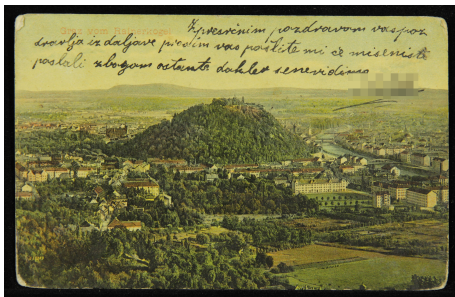 Zpresrčnim pozdravom vas poz
dravlja iz daljave prosim vas pošlite mi če mi seniste
poslali zbogom ostante dokler se nevidimo